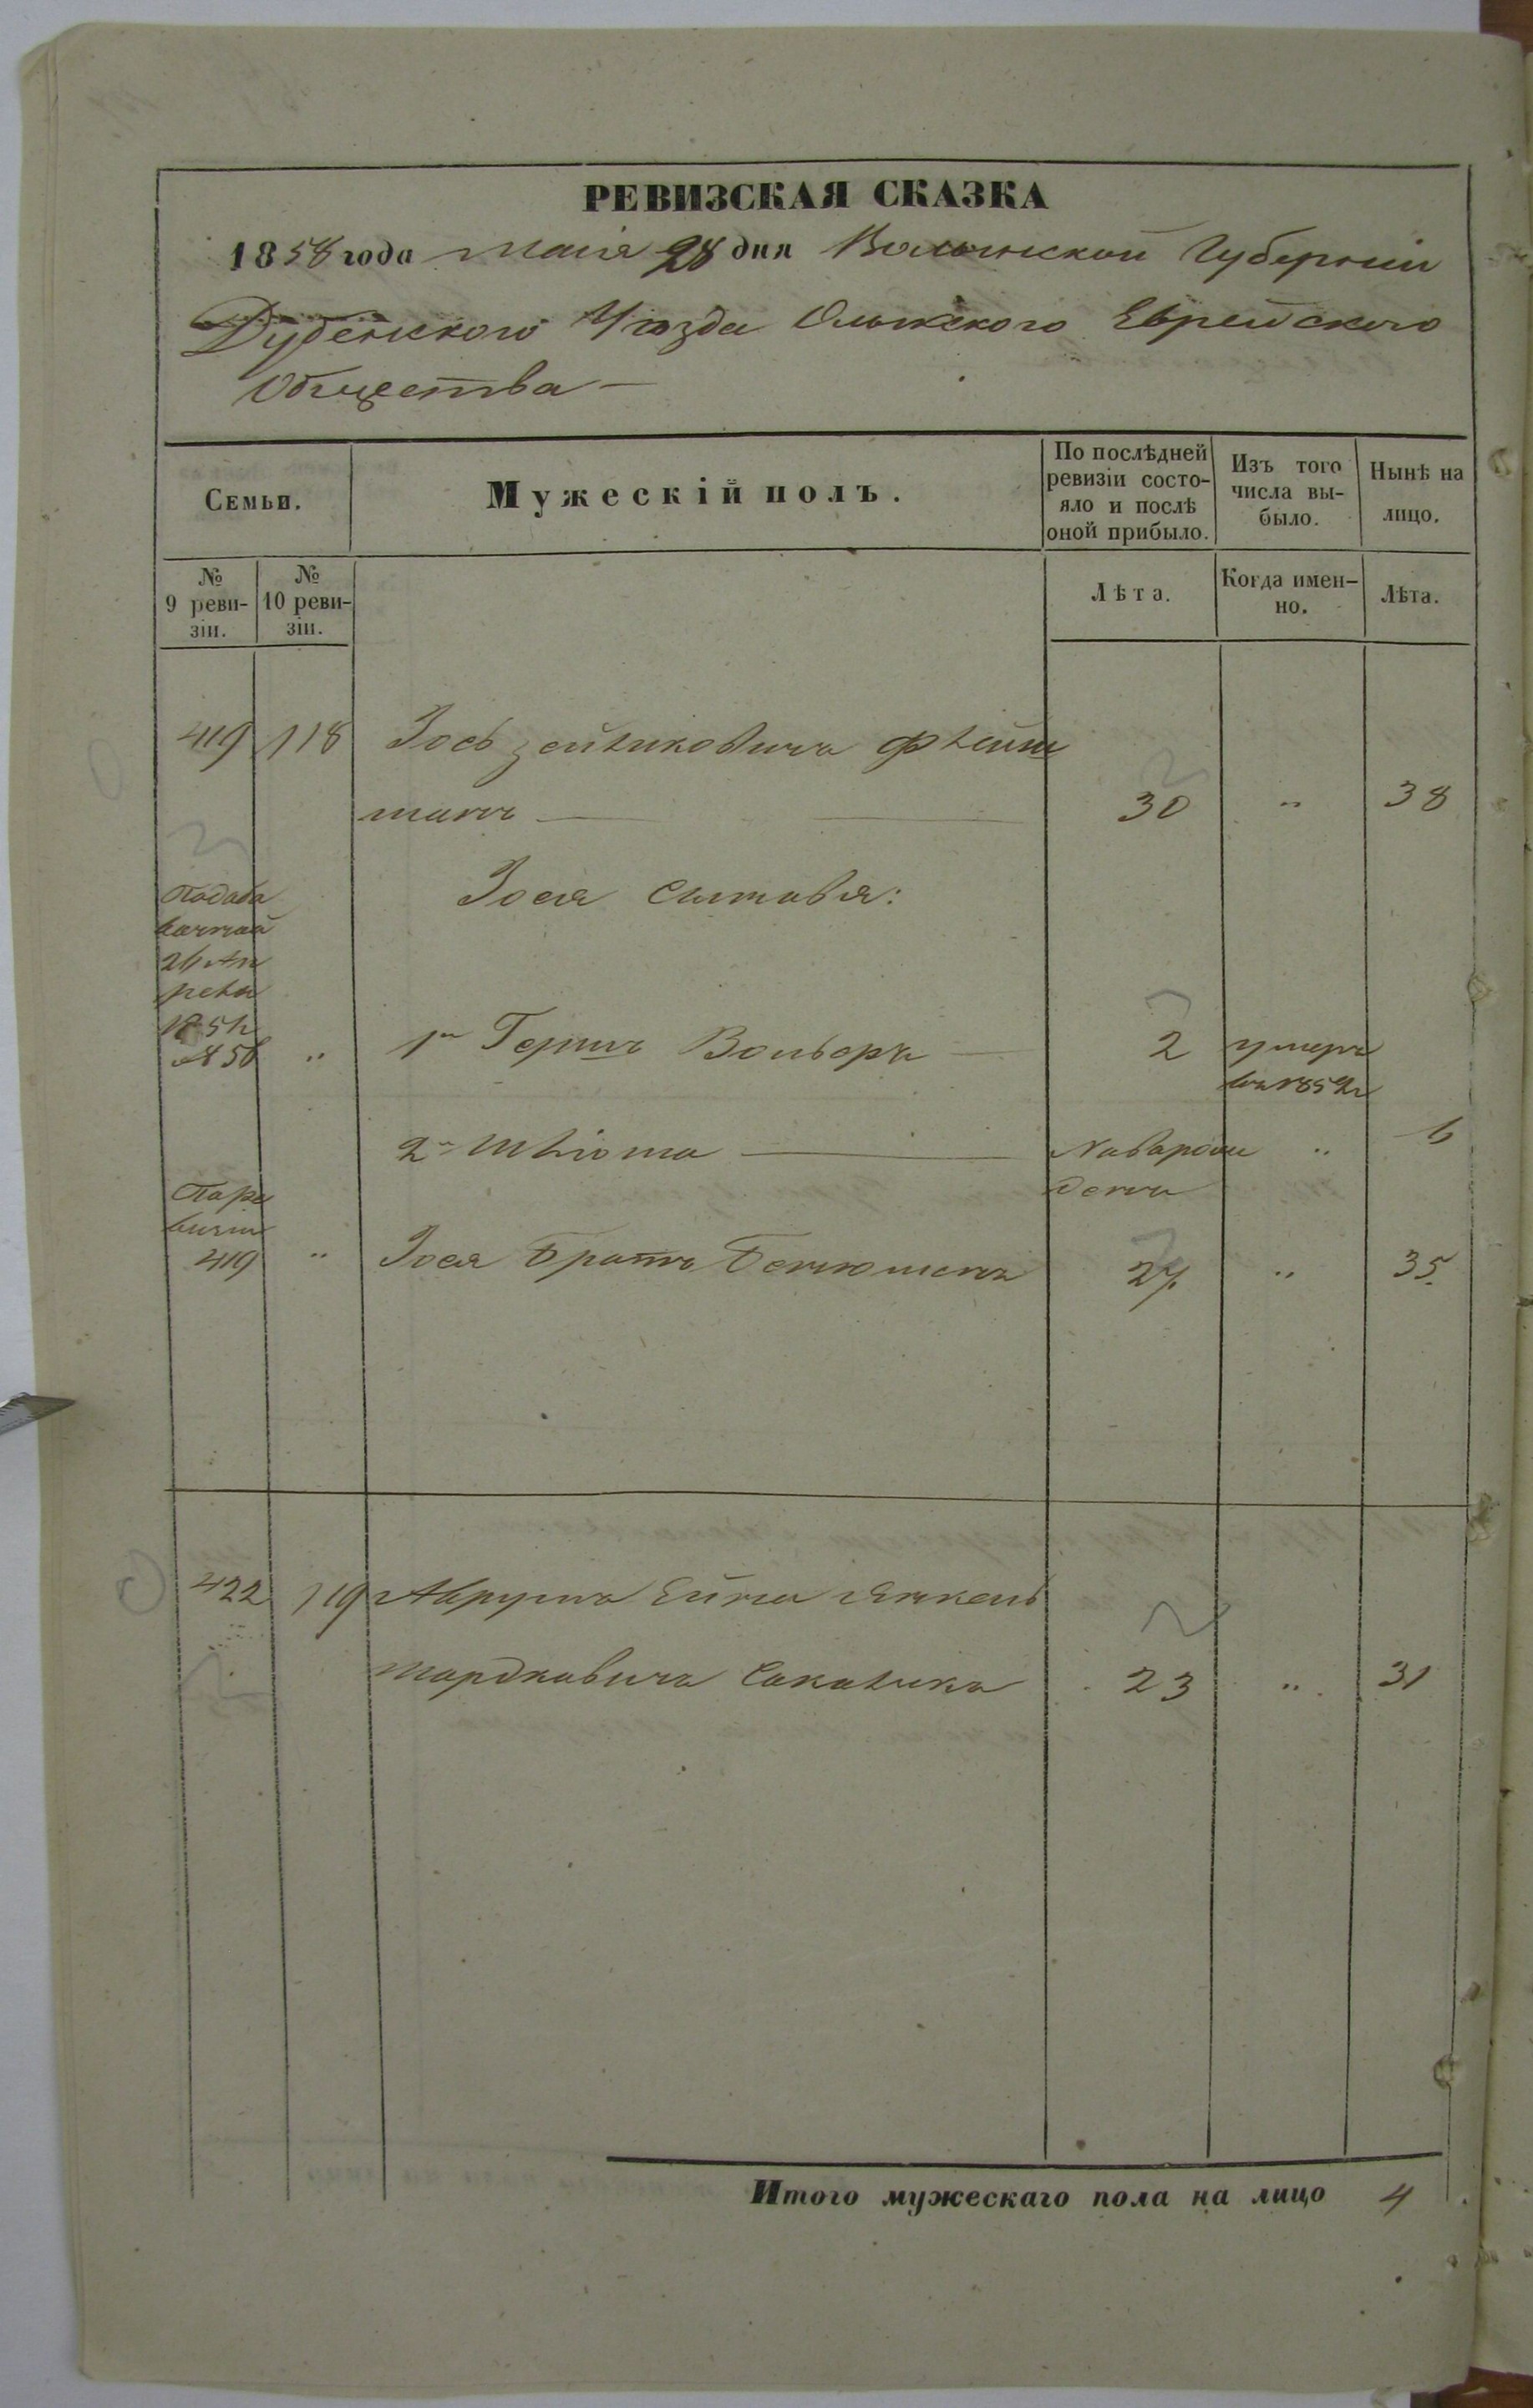 РЕВИЗСКАЯ СКАЗКА
1858 года Маія 28 дня Волынской Губерніи
Дубенского Уѣзда Олыкского Еврейского
Общества —
Семьи.
Мужескій полъ.
По послѣдней ревизіи состо-
яло и послѣ оной прибыло.
Изъ того числа вы-
было.
Нынѣ на лицо.
№ 9 реви-
зіи.
№ 10 реви-
зіи.
Лѣта.
Когда имен-
но.
Лѣта.
419 118 Іось Зейликовичъ Флейш
манъ 30 " 38
Іося Сыновья:
1й Гершъ Вольберъ 2 умеръ
въ 1852г
2й Шліома Новорож
денъ " 6
419 " Іося Братъ Бенюменъ 27 " 35
422 119 Аврумъ Ейна Янкель
Мордковичъ 23 " 31
Итого мужескаго пола на лицо 4